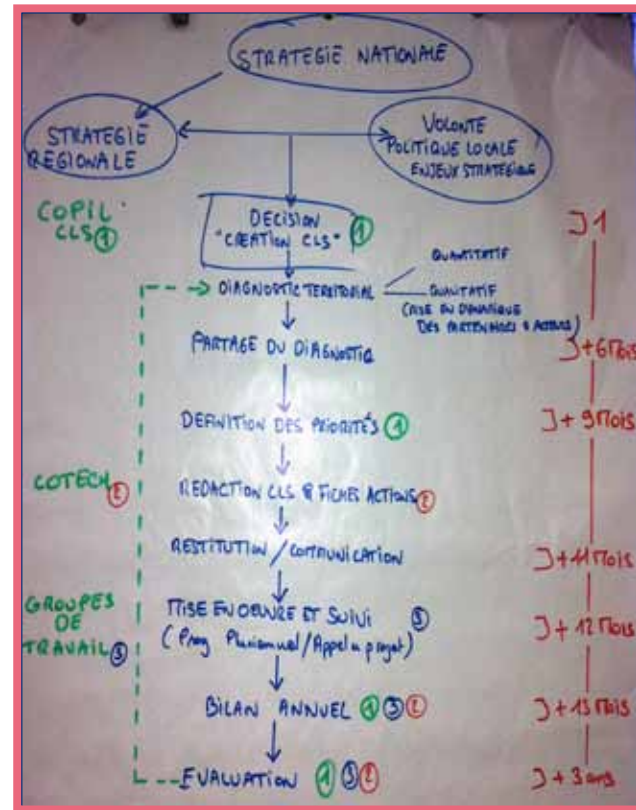 STRATEGIE NATIONALE
STRATEGIE REGIONALE
VOLONTE POLITIQUE LOCALE ENJEUX STRATEGIQUE
COPIL CLS ①
DECISION "CREATION CLS" ①
J1
DIAGNOSTIC TERRITORIAL
QUANTITATIF
QUALITATIF
(MISE EN DYNAMIQUE
DES PARTENAIRES & ACTEURS)
PARTAGE DU DIAGNOSTIQ
J+6 Mois
DEFINITION DES PRIORITÉS ①
J+9 Mois
COTECH ②
REDACTION CLS & FICHES ACTIONS ②
RESTITUTION / COMMUNICATION
J+11 Mois
GROUPES DE TRAVAIL ③
MISE EN OEUVRE ET SUIVI ③
(Prog Pluriannuel / Appel a projet)
J+12 Mois
BILAN ANNUEL ① ③ ②
J+15 Mois
EVALUATION ① ③ ②
J+3 ans